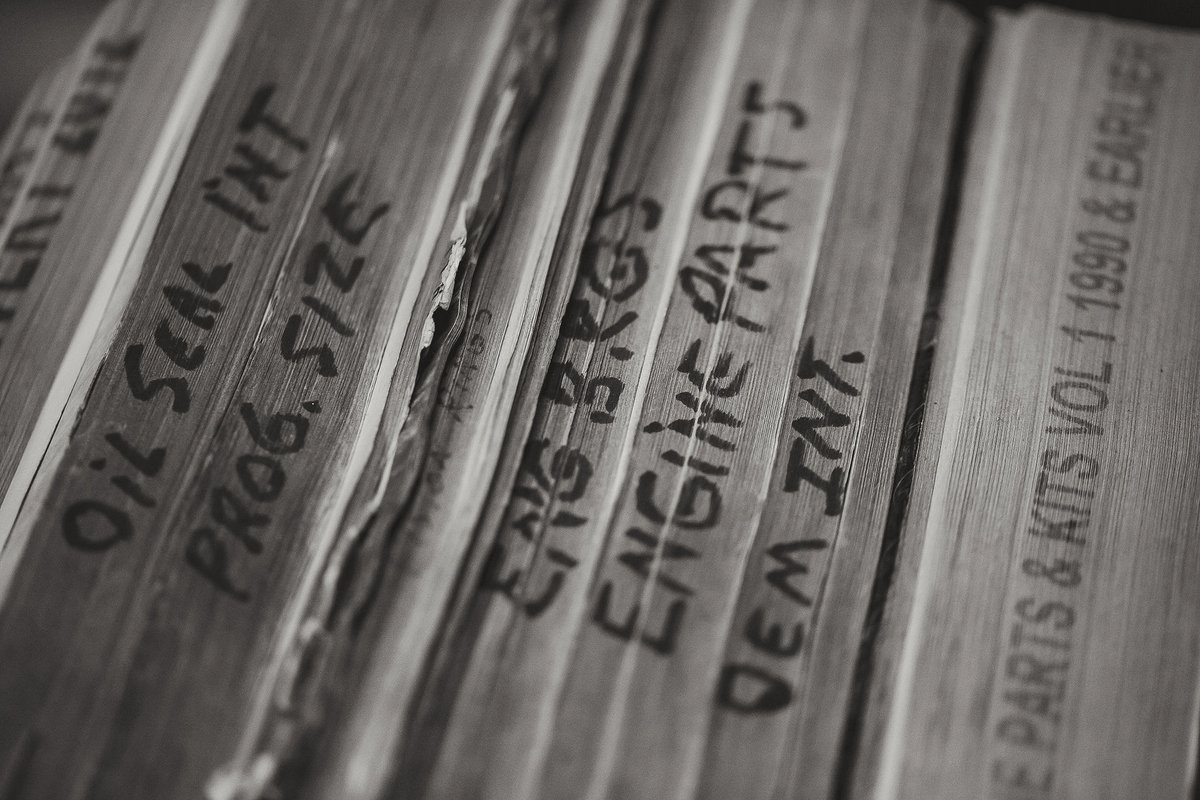 OIL SEAL INT
PROG. SIZE
ENG BRGS
ENGINE PARTS
OEM INT.
E PARTS & KITS VOL 1 1990 & EARLIER